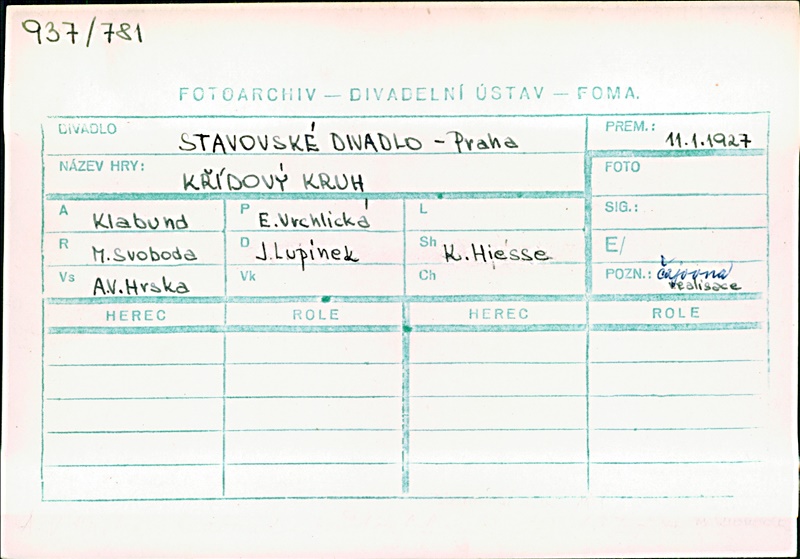 937/781
FOTOARCHIV — DIVADELNÍ ÚSTAV — FOMA.
DIVADLO STAVOVSKÉ DIVADLO - Praha PREM.: 11.1.1927
NÁZEV HRY: KŘÍDOVÝ KRUH FOTO
A Klabund P E.Vrchlická L SIG.:
R M.Svoboda D J.Lupínek Sh K.Hiesse E/
Vs A.V.Hrska Vk Ch POZN.: čajovna
realisace
HEREC ROLE HEREC ROLE